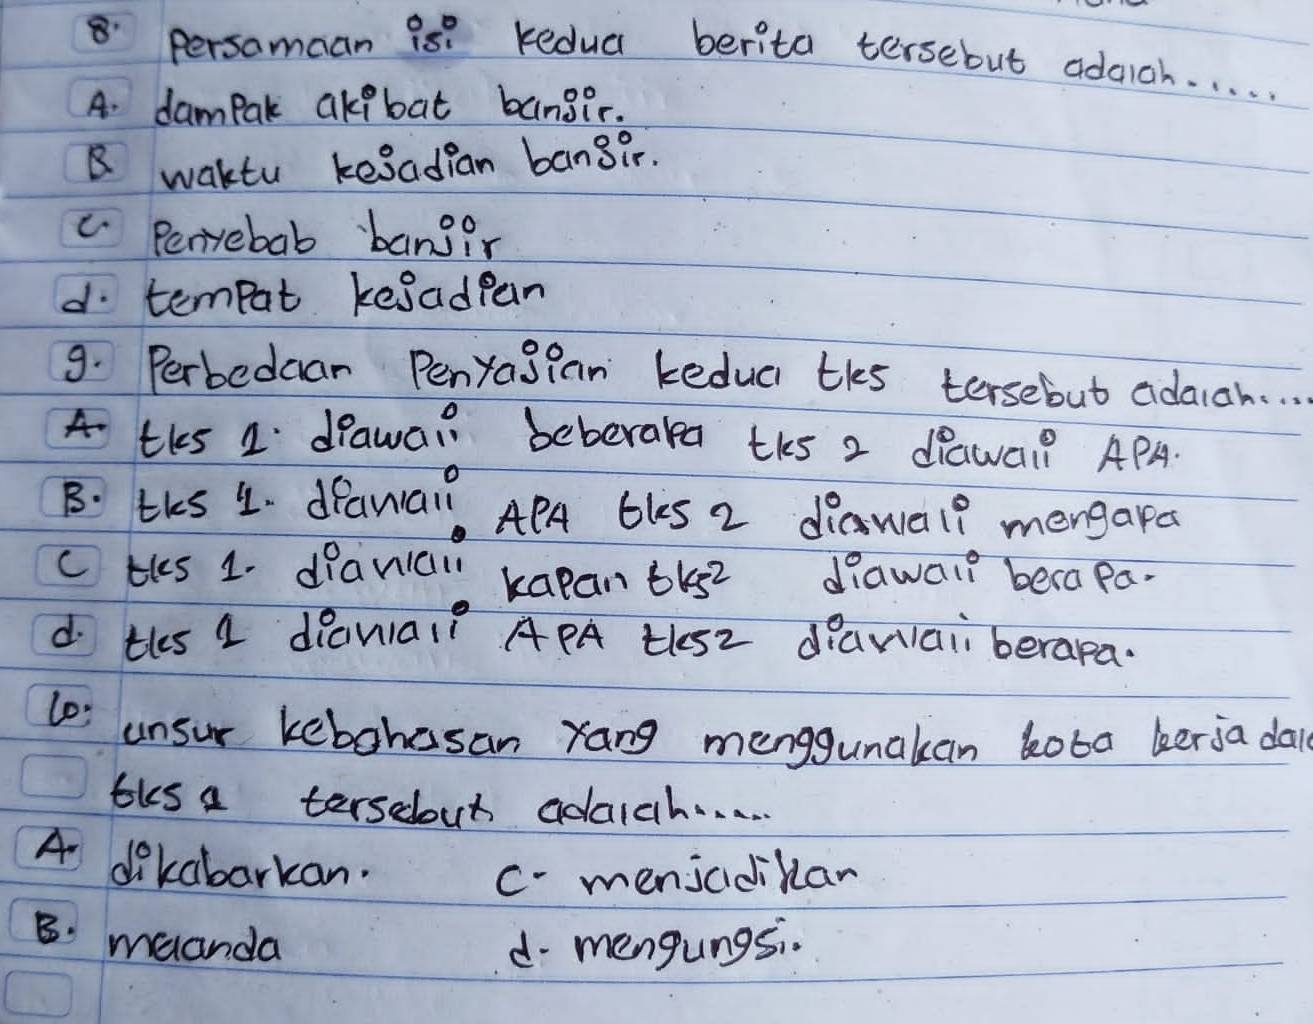 8. Persamaan isi kedua berita tersebut adalah.....
A. dampak akibat banjir.
B. waktu kejadian banjir.
C. Penyebab banjir
d. tempat kejadian
9. Perbedaan Penyajian kedua tks tersebut adalah....
A. tks 1. diawali beberapa tks 2 diawali APA.
B. tks 1. diawali APA tks 2 diawali mengapa
C tks 1. diawali kapan tks2 diawali berapa.
d. tks 1 diawali APA tks2 diawali berapa.
10. unsur kebahasan yang menggunakan kota kerja
tks 1 tersebut adalah.....
A. dikabarkan. C. menjadikan
B. melanda d. mengungsi.